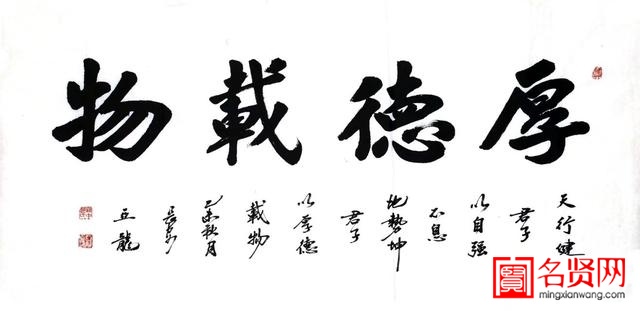 厚德載物
天行健
君子
以自强
不息
地勢坤
君子
以厚德
載物
乙未秋月
五龍
名贤网
mingxianwang.com